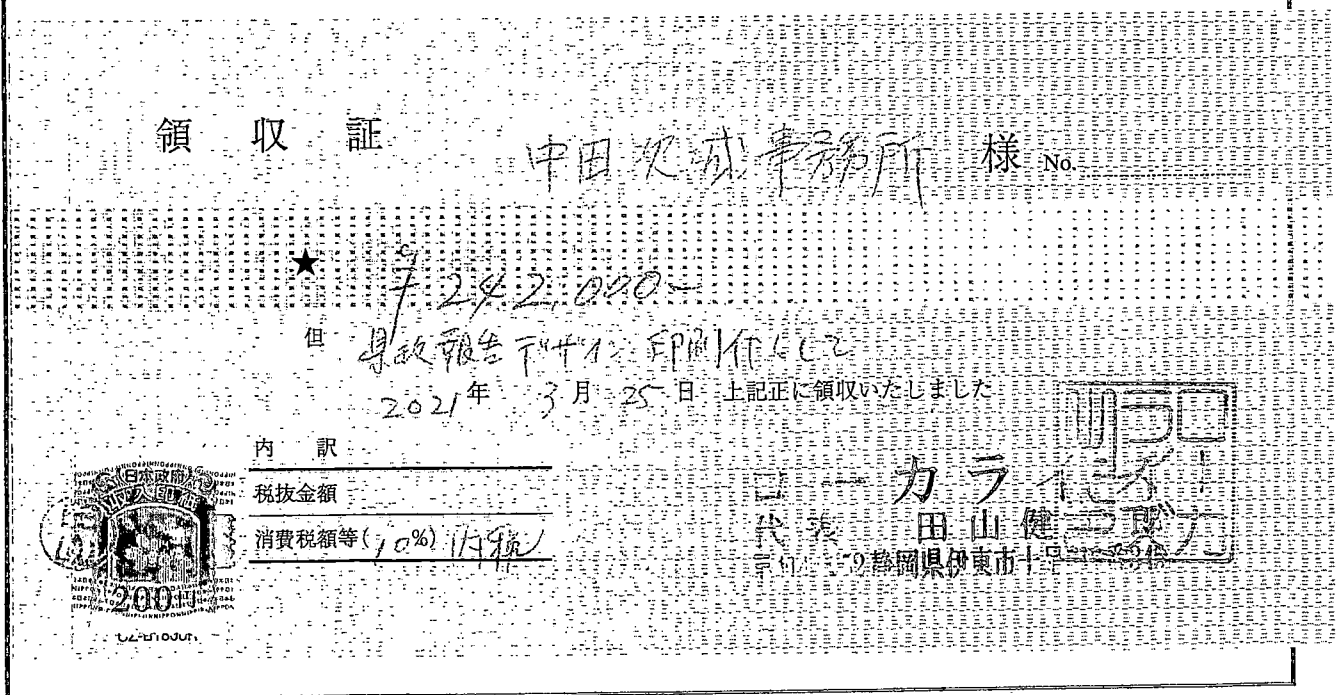 領収証 中田次城事務所 様 No.
★ ¥242,000-
但 県政報告デザイン印刷代として
2021年 3月 25日 上記正に領収いたしました
内 訳
税抜金額
消費税額等(10%) 内税
日本政府
200円
ローカラ
代表 田山健
静岡県伊東市十